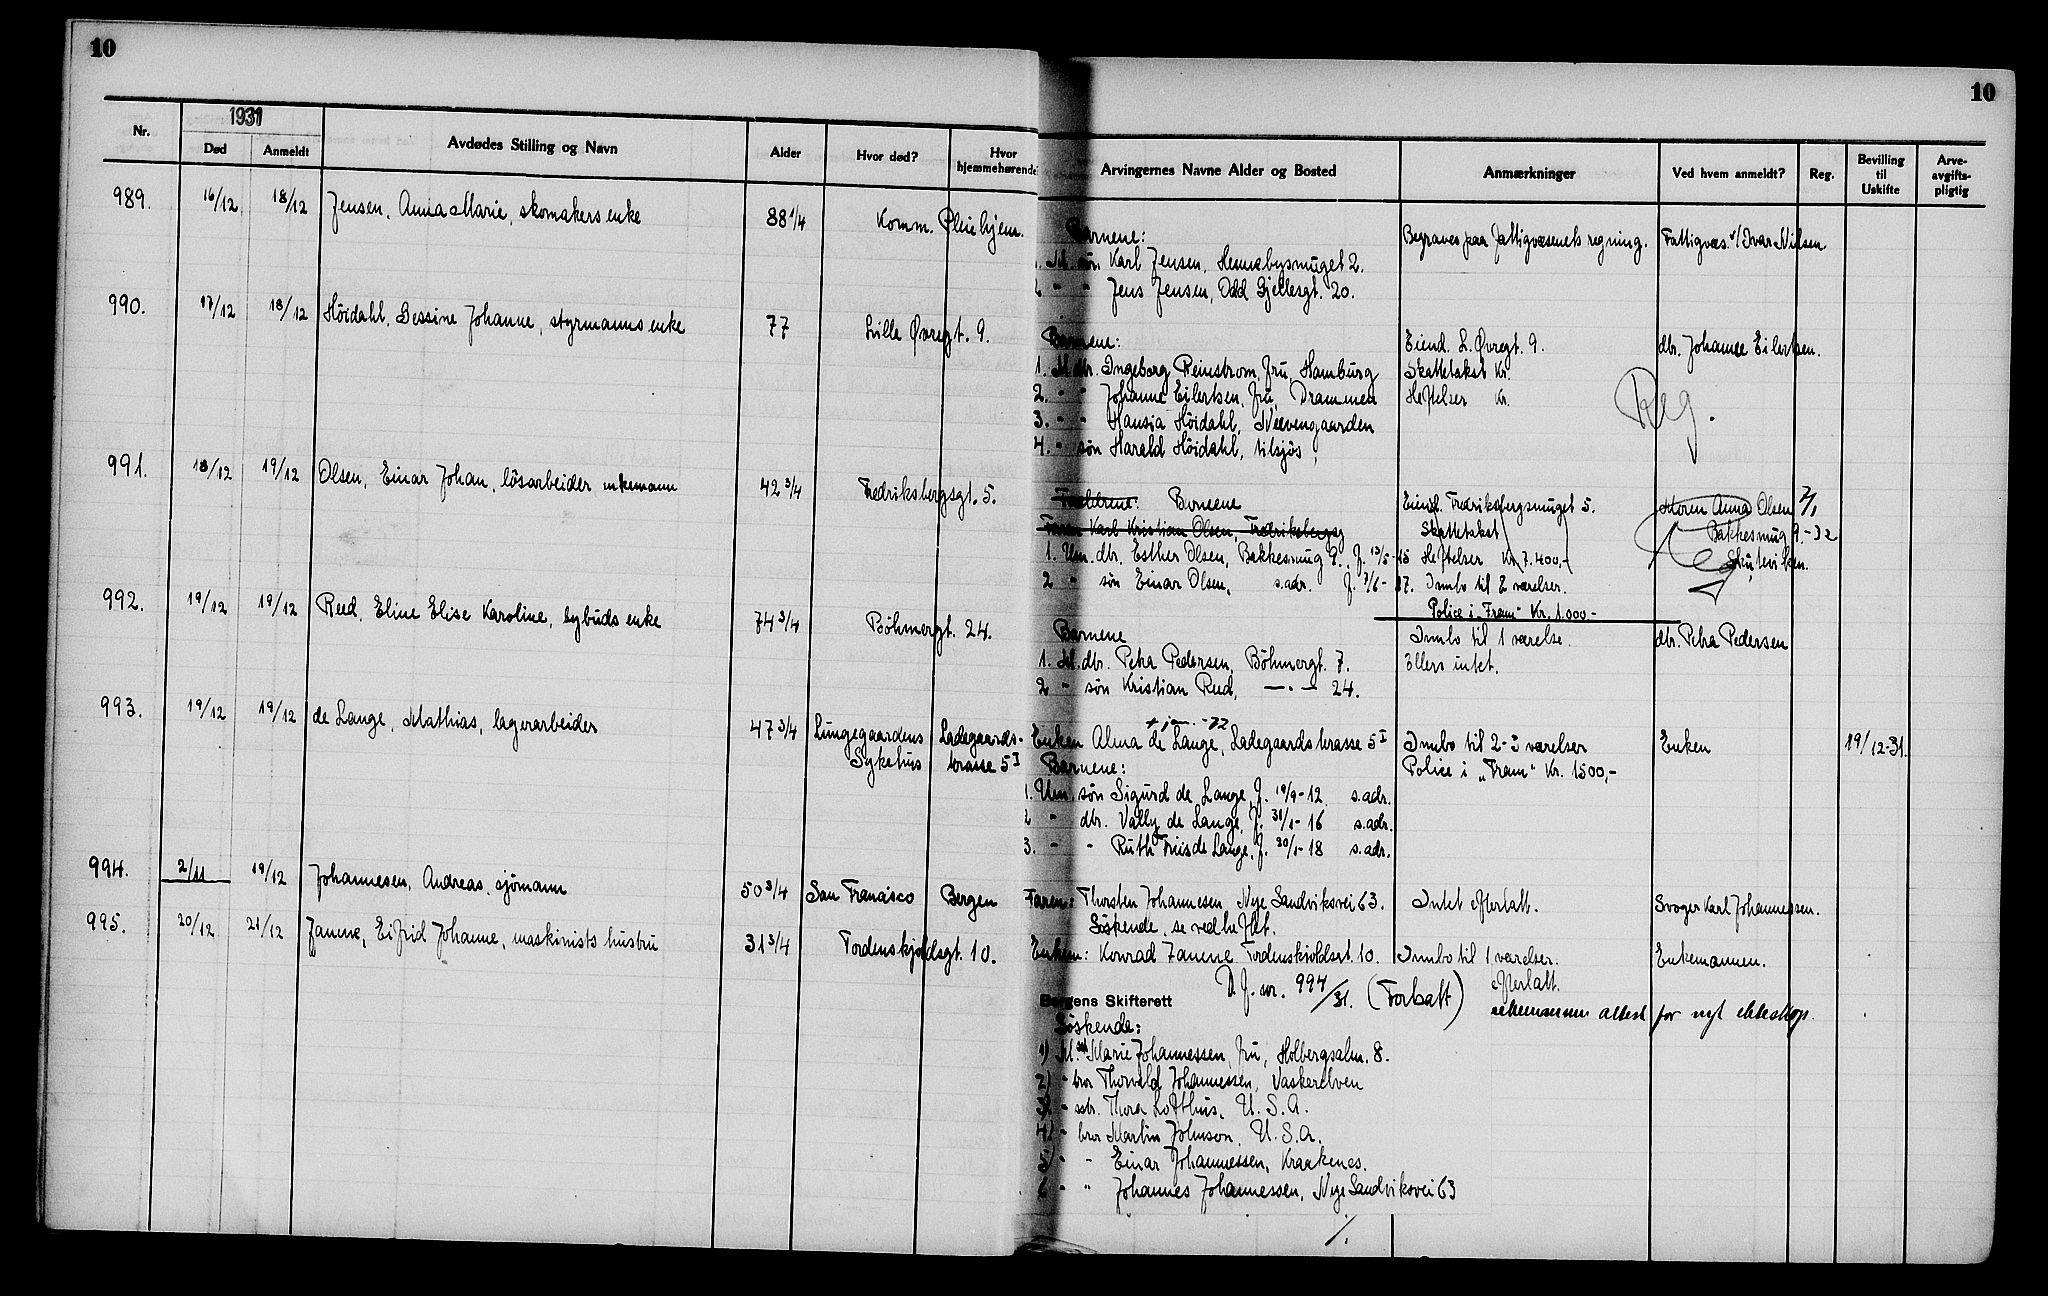 10
10
1931
Nr.
Død
Anmeldt
Avdødes Stilling og Navn
Alder
Hvor død?
Hvor hjemmehørende
Arvingernes Navne Alder og Bosted
Anmærkninger
Ved hvem anmeldt?
Reg.
Bevilling til Uskifte
Arve-avgifts-pligtig
989. 16/12 18/12 Jensen, Anna Marie, skomakers enke 88 1/4 Komm. Pleiehjem.
Barnene: Begraves paa fattigvæsenets regning. Fattigvæs. v/ Ivar Nilsen
1. M. søn Karl Jensen, Hennebysmuget 2.
2 " " Jens Jensen, Odd Gjellesgt. 20.
990. 17/12 18/12 Höidahl, Gessine Johanne, styrmanns enke 77 Lille Øvregt. 9.
Barnene: Eiend. L. Øvregt. 9. dtr. Johanne Eilertsen.
1. M. dtr. Ingeborg Reinstrom, fru, Hamburg Skattetakst Kr.
2. " " Johanne Eilertsen, fru, Drammen Heftelser Kr. Reg.
3. " " Hansia Höidahl, Neevengaarden
4. " søn Harald Höidahl, tilsjøs,
991. 18/12 19/12 Olsen, Einar Johan, løsarbeider enkemann 42 3/4 Fredriksbergsgt. 5.
Forældrene: Barnene Eiend. Fredriksbergsmuget 5. Moren Anna Olsen 7/1
Faren Karl Kristian Olsen, Fredriksbergsg Skattetakst Bakkesmug 9. -32
1. Um. dtr. Esther Olsen, Bakkesmug 9., f. 13/5-15 Heftelser Kr. 7.400,- Skuteviken. Reg
2 " søn Einar Olsen, s. adr. f. 7/6-17. Innbo til 2 værelser.
Police i "Fram" Kr. 1.000-
992. 19/12 19/12 Reed, Eline Elise Karoline, bybuds enke 74 3/4 Böhmergt. 24.
Barnene Innbo til 1 værelse. dtr. Petra Pedersen
1. M. dtr. Petra Pedersen, Böhmergt. 7. Ellers intet.
2 " søn Kristian Reed, — " — 24.
993. 19/12 19/12 de Lange, Mathias, lagerarbeider 47 3/4 Lungegaardens Sykehus Ladegaards-terasse 5 I
Enken Alma de Lange, Ladegaards terasse 5 I Innbo til 2-3 værelser Enken 19/12-31.
Barnene: Police i "Fram" Kr. 1500,-
1. Um. søn Sigurd de Lange, f. 10/9-12 s. adr.
2 " dtr. Vally de Lange, f. 31/1-16 s. adr.
3. " " Ruth Friis de Lange, f. 30/1-18 s. adr.
994. 2/11 19/12 Johannesen, Andreas, sjömann 50 3/4 San Francisco Bergen
Faren: Thorsten Johannesen, Nye Sandviksvei 63. Intet efterlatt. Svoger Karl Johannessen.
Söskende, se vedheftet.
995. 20/12 21/12 Janene, Eifrid Johanne, maskinists hustru 31 3/4 Tordenskjoldsgt. 10.
Enkem: Konrad Janene Tordenskjoldsgt. 10. Innbo til 1 værelser. Enkemannen.
efterlatt.
D.f. nr. 994/31. (Forlatt) enkemannen attest for nyt ekteskap.
Bergens Skifterett
Söskende:
1) M. Marie Johannessen, fru, Holbergsalm. 8.
2) " bror Thorvald Johannessen, Vaskerelven
3) " sstr. Thora Lofthus, U.S.A.
4) " bror Martin Johnson, U.S.A.
5) " " Einar Johannessen, Kraakenes.
6 " " Johannes Johannessen, Nye Sandviksvei 63